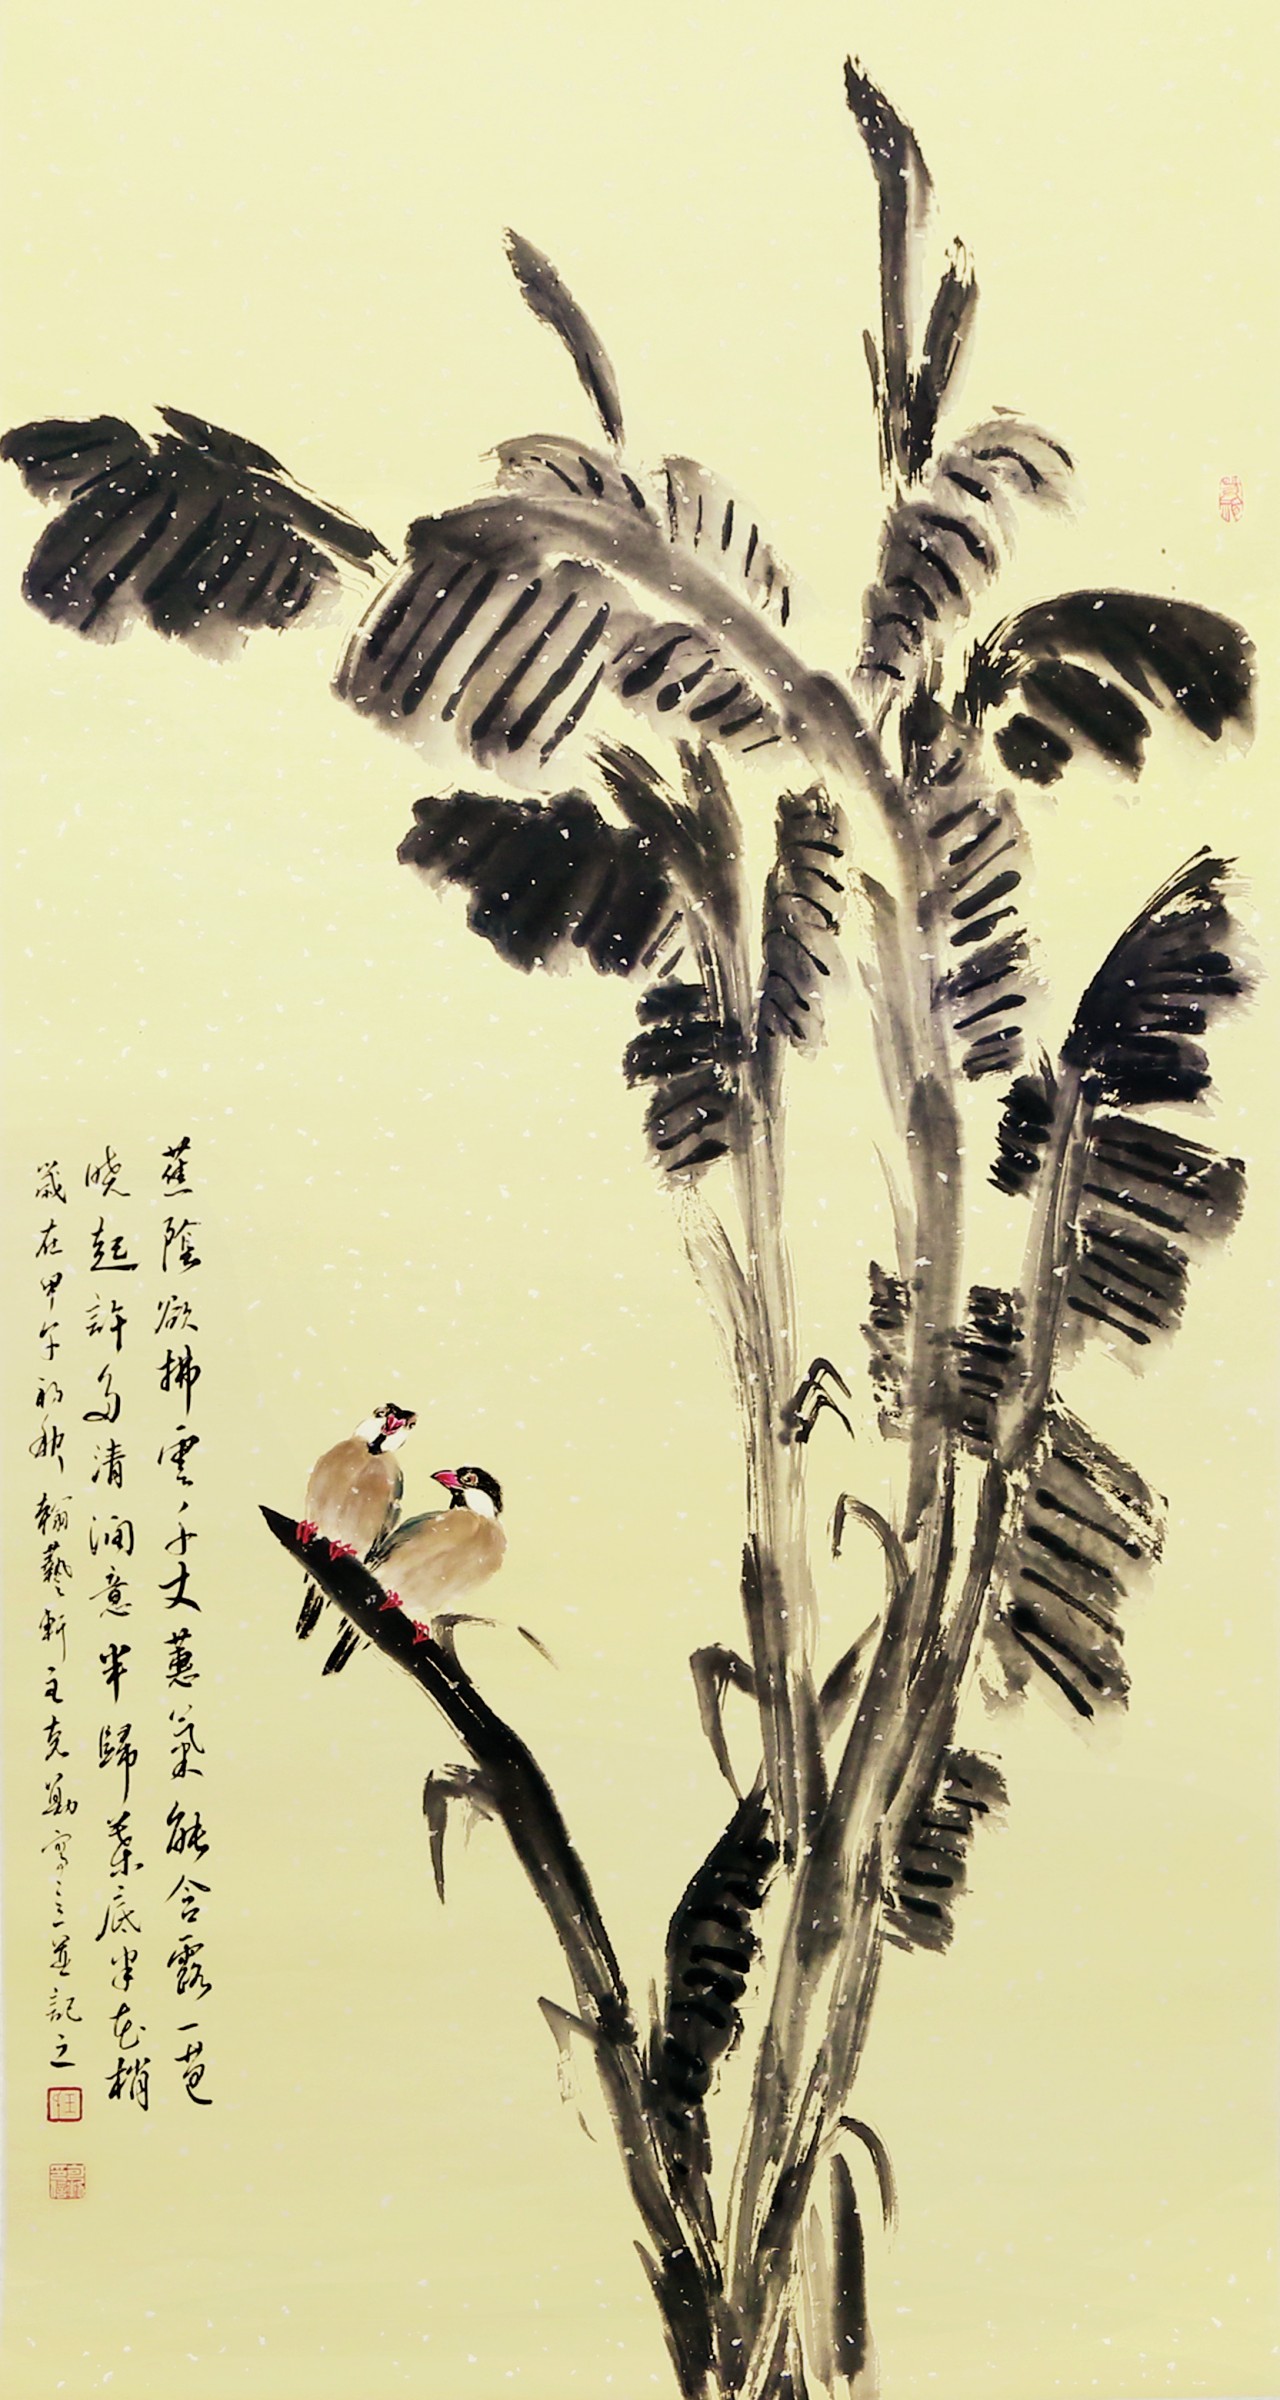 蕉陰欲拂雲千丈蕙氣能含露一苞
曉起許多清潤意半歸葉底半花梢
歲在甲午初秋翰藝軒主克勤寫意並記之